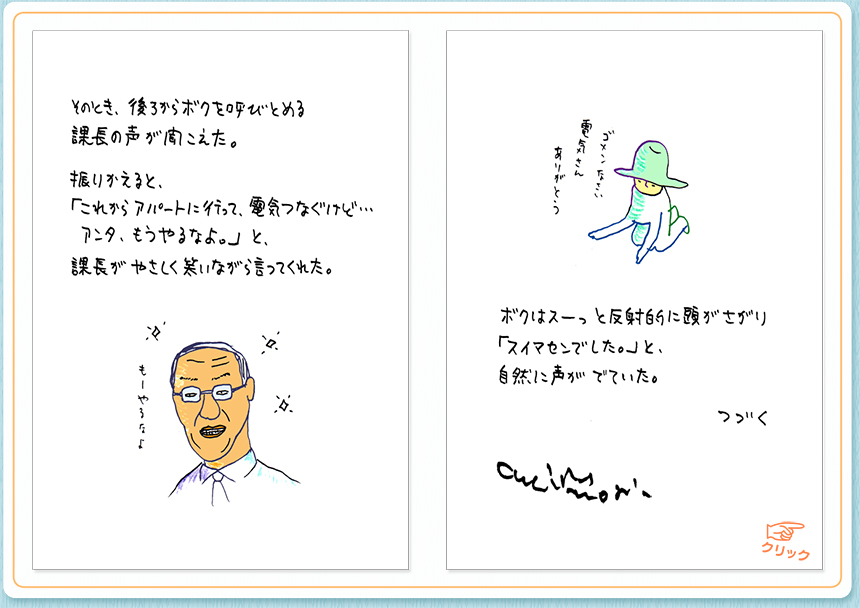 そのとき、後ろからボクを呼びとめる
課長の声が聞こえた。
振りかえると、
「これからアパートに行って、電気つなぐけど…
アンタ、もうやるなよ。」と、
課長がやさしく笑いながら言ってくれた。
もーやるなよ
ゴメンなさい
電気さん
ありがとう
ボクはスーっと反射的に頭がさがり
「スイマセンでした。」と、
自然に声がでていた。
つづく
クリック